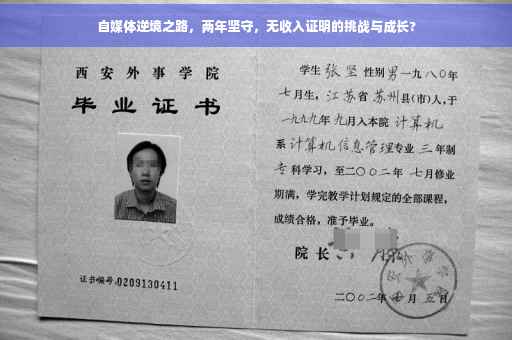 自媒体逆境之路，两年坚守，无收入证明的挑战与成长？
西安外事学院
毕业证书
证书编号:0209130411
学生 张坚 性别 男 一九八〇年
七月生，江苏省 苏州县(市)人,于
一九九九年 九月入本院 计算机
系 计算机信息管理专业 三 年制
专 科学习，至二〇〇二年 七月修业
期满，学完教学计划规定的全部课程，
成绩合格，准予毕业。
院长
二〇〇二年 月 五日